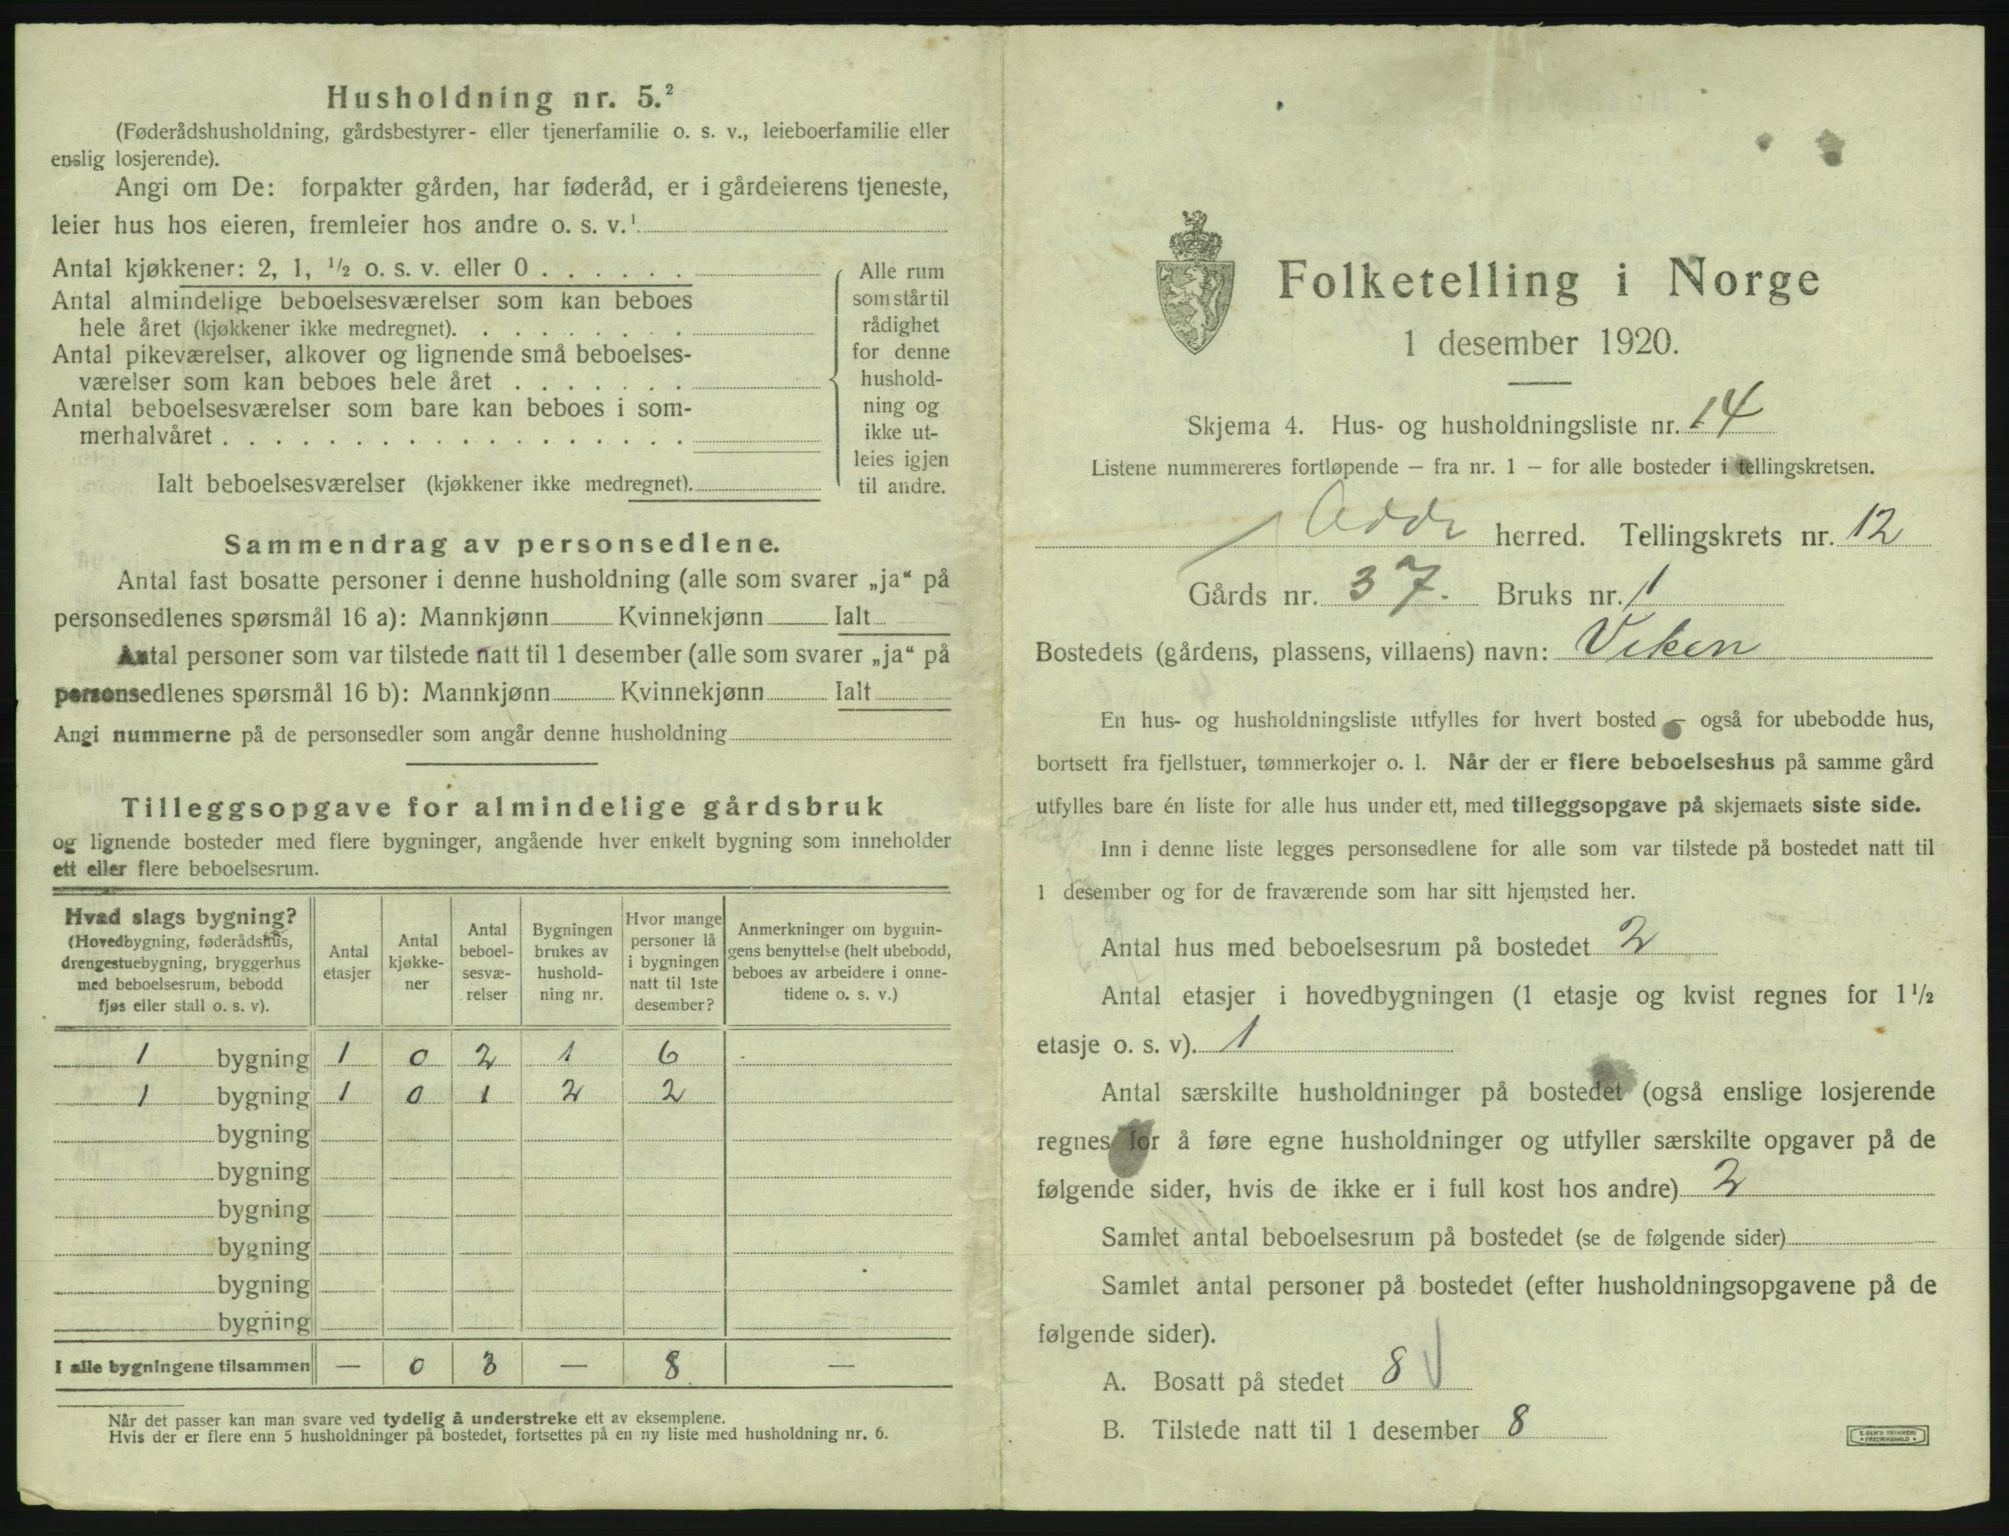 Husholdning nr. 5.²
(Føderådshusholdning, gårdsbestyrer- eller tjenerfamilie o. s. v., leieboerfamilie eller
enslig losjerende).
Angi om De: forpakter gården, har føderåd, er i gårdeierens tjeneste,
leier hus hos eieren, fremleier hos andre o. s. v.¹
Antal kjøkkener: 2, 1, ½ o. s. v. eller 0 . . . . . .
Antal almindelige beboelsesværelser som kan beboes
hele året (kjøkkener ikke medregnet). . . . . . . . .
Antal pikeværelser, alkover og lignende små beboelses-
værelser som kan beboes hele året . . . . . . .
Antal beboelsesværelser som bare kan beboes i som-
merhalvåret . . . . . . . . . . . . . . . . . .
Ialt beboelsesværelser (kjøkkener ikke medregnet).
Alle rum
som står til
rådighet
for denne
hushold-
ning og
ikke ut-
leies igjen
til andre.
Sammendrag av personsedlene.
Antal fast bosatte personer i denne husholdning (alle som svarer „ja“ på
personsedlenes spørsmål 16 a): Mannkjønn Kvinnekjønn Ialt
Antal personer som var tilstede natt til 1 desember (alle som svarer „ja“ på
personsedlenes spørsmål 16 b): Mannkjønn Kvinnekjønn Ialt
Angi nummerne på de personsedler som angår denne husholdning
Tilleggsopgave for almindelige gårdsbruk
og lignende bosteder med flere bygninger, angående hver enkelt bygning som inneholder
ett eller flere beboelsesrum.
Hvad slags bygning?
(Hovedbygning, føderådshus,
drengestuebygning, bryggerhus
med beboelsesrum, bebodd
fjøs eller stall o. s. v).
Antal
etasjer
Antal
kjøkke-
ner
Antal
beboel-
sesvæ-
relser
Bygningen
brukes av
hushold-
ning nr.
Hvor mange
personer lå
i bygningen
natt til 1ste
desember?
Anmerkninger om bygnin-
gens benyttelse (helt ubebodd,
beboes av arbeidere i onne-
tidene o. s. v.)
1 bygning 1 0 2 1 6
1 bygning 1 0 1 2 2
bygning
bygning
bygning
bygning
bygning
bygning
I alle bygningene tilsammen — 0 3 — 8 —
Når det passer kan man svare ved tydelig å understreke ett av eksemplene.
Hvis der er flere enn 5 husholdninger på bostedet, fortsettes på en ny liste med husholdning nr. 6.
Folketelling i Norge
1 desember 1920.
Skjema 4. Hus- og husholdningsliste nr. 14
Listene nummereres fortløpende – fra nr. 1 – for alle bosteder i tellingskretsen.
herred. Tellingskrets nr. 12
Gårds nr. 37. Bruks nr. 1
Bostedets (gårdens, plassens, villaens) navn: Viken
En hus- og husholdningsliste utfylles for hvert bosted – også for ubebodde hus,
bortsett fra fjellstuer, tømmerkojer o. l. Når der er flere beboelseshus på samme gård
utfylles bare én liste for alle hus under ett, med tilleggsopgave på skjemaets siste side.
Inn i denne liste legges personsedlene for alle som var tilstede på bostedet natt til
1 desember og for de fraværende som har sitt hjemsted her.
Antal hus med beboelsesrum på bostedet 2
Antal etasjer i hovedbygningen (1 etasje og kvist regnes for 1½
etasje o. s. v). 1
Antal særskilte husholdninger på bostedet (også enslige losjerende
regnes for å føre egne husholdninger og utfyller særskilte opgaver på de
følgende sider, hvis de ikke er i full kost hos andre) 2
Samlet antal beboelsesrum på bostedet (se de følgende sider)
Samlet antal personer på bostedet (efter husholdningsopgavene på de
følgende sider).
A. Bosatt på stedet 8
B. Tilstede natt til 1 desember 8